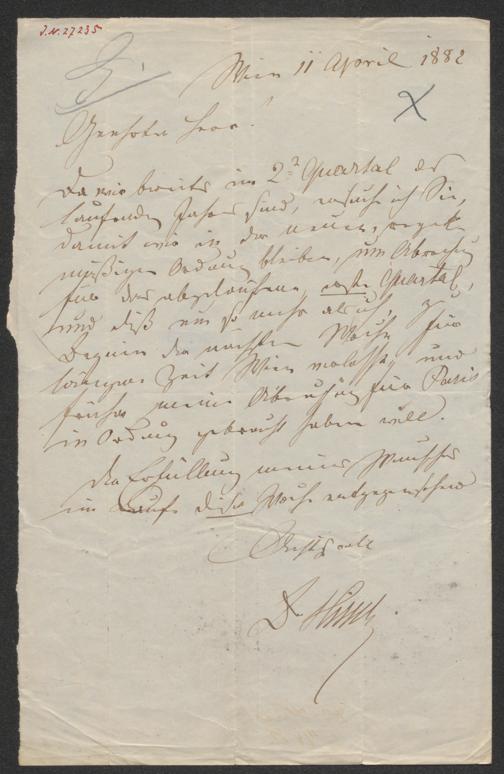 J.N. 27235
Wien 11 April 1882
Geehrter Herr!
Da wir bereits im 2. Quartal des
laufenden Jahres sind, ersuche ich Sie,
damit wir in der neuen, regel-
mäßigen Ordnung bleiben, um Abrechnung
für das abgelaufene, erste Quartal,
und dieß um so mehr als ich zu
Beginn der nächsten Woche für
längere Zeit Wien verlasse und
früher meine Abrechnung für Paris
in Ordnung gebracht haben will.
Der Erfüllung meines Wunsches
im Laufe dieser Woche entgegensehend
Achtungsvoll
Dr.